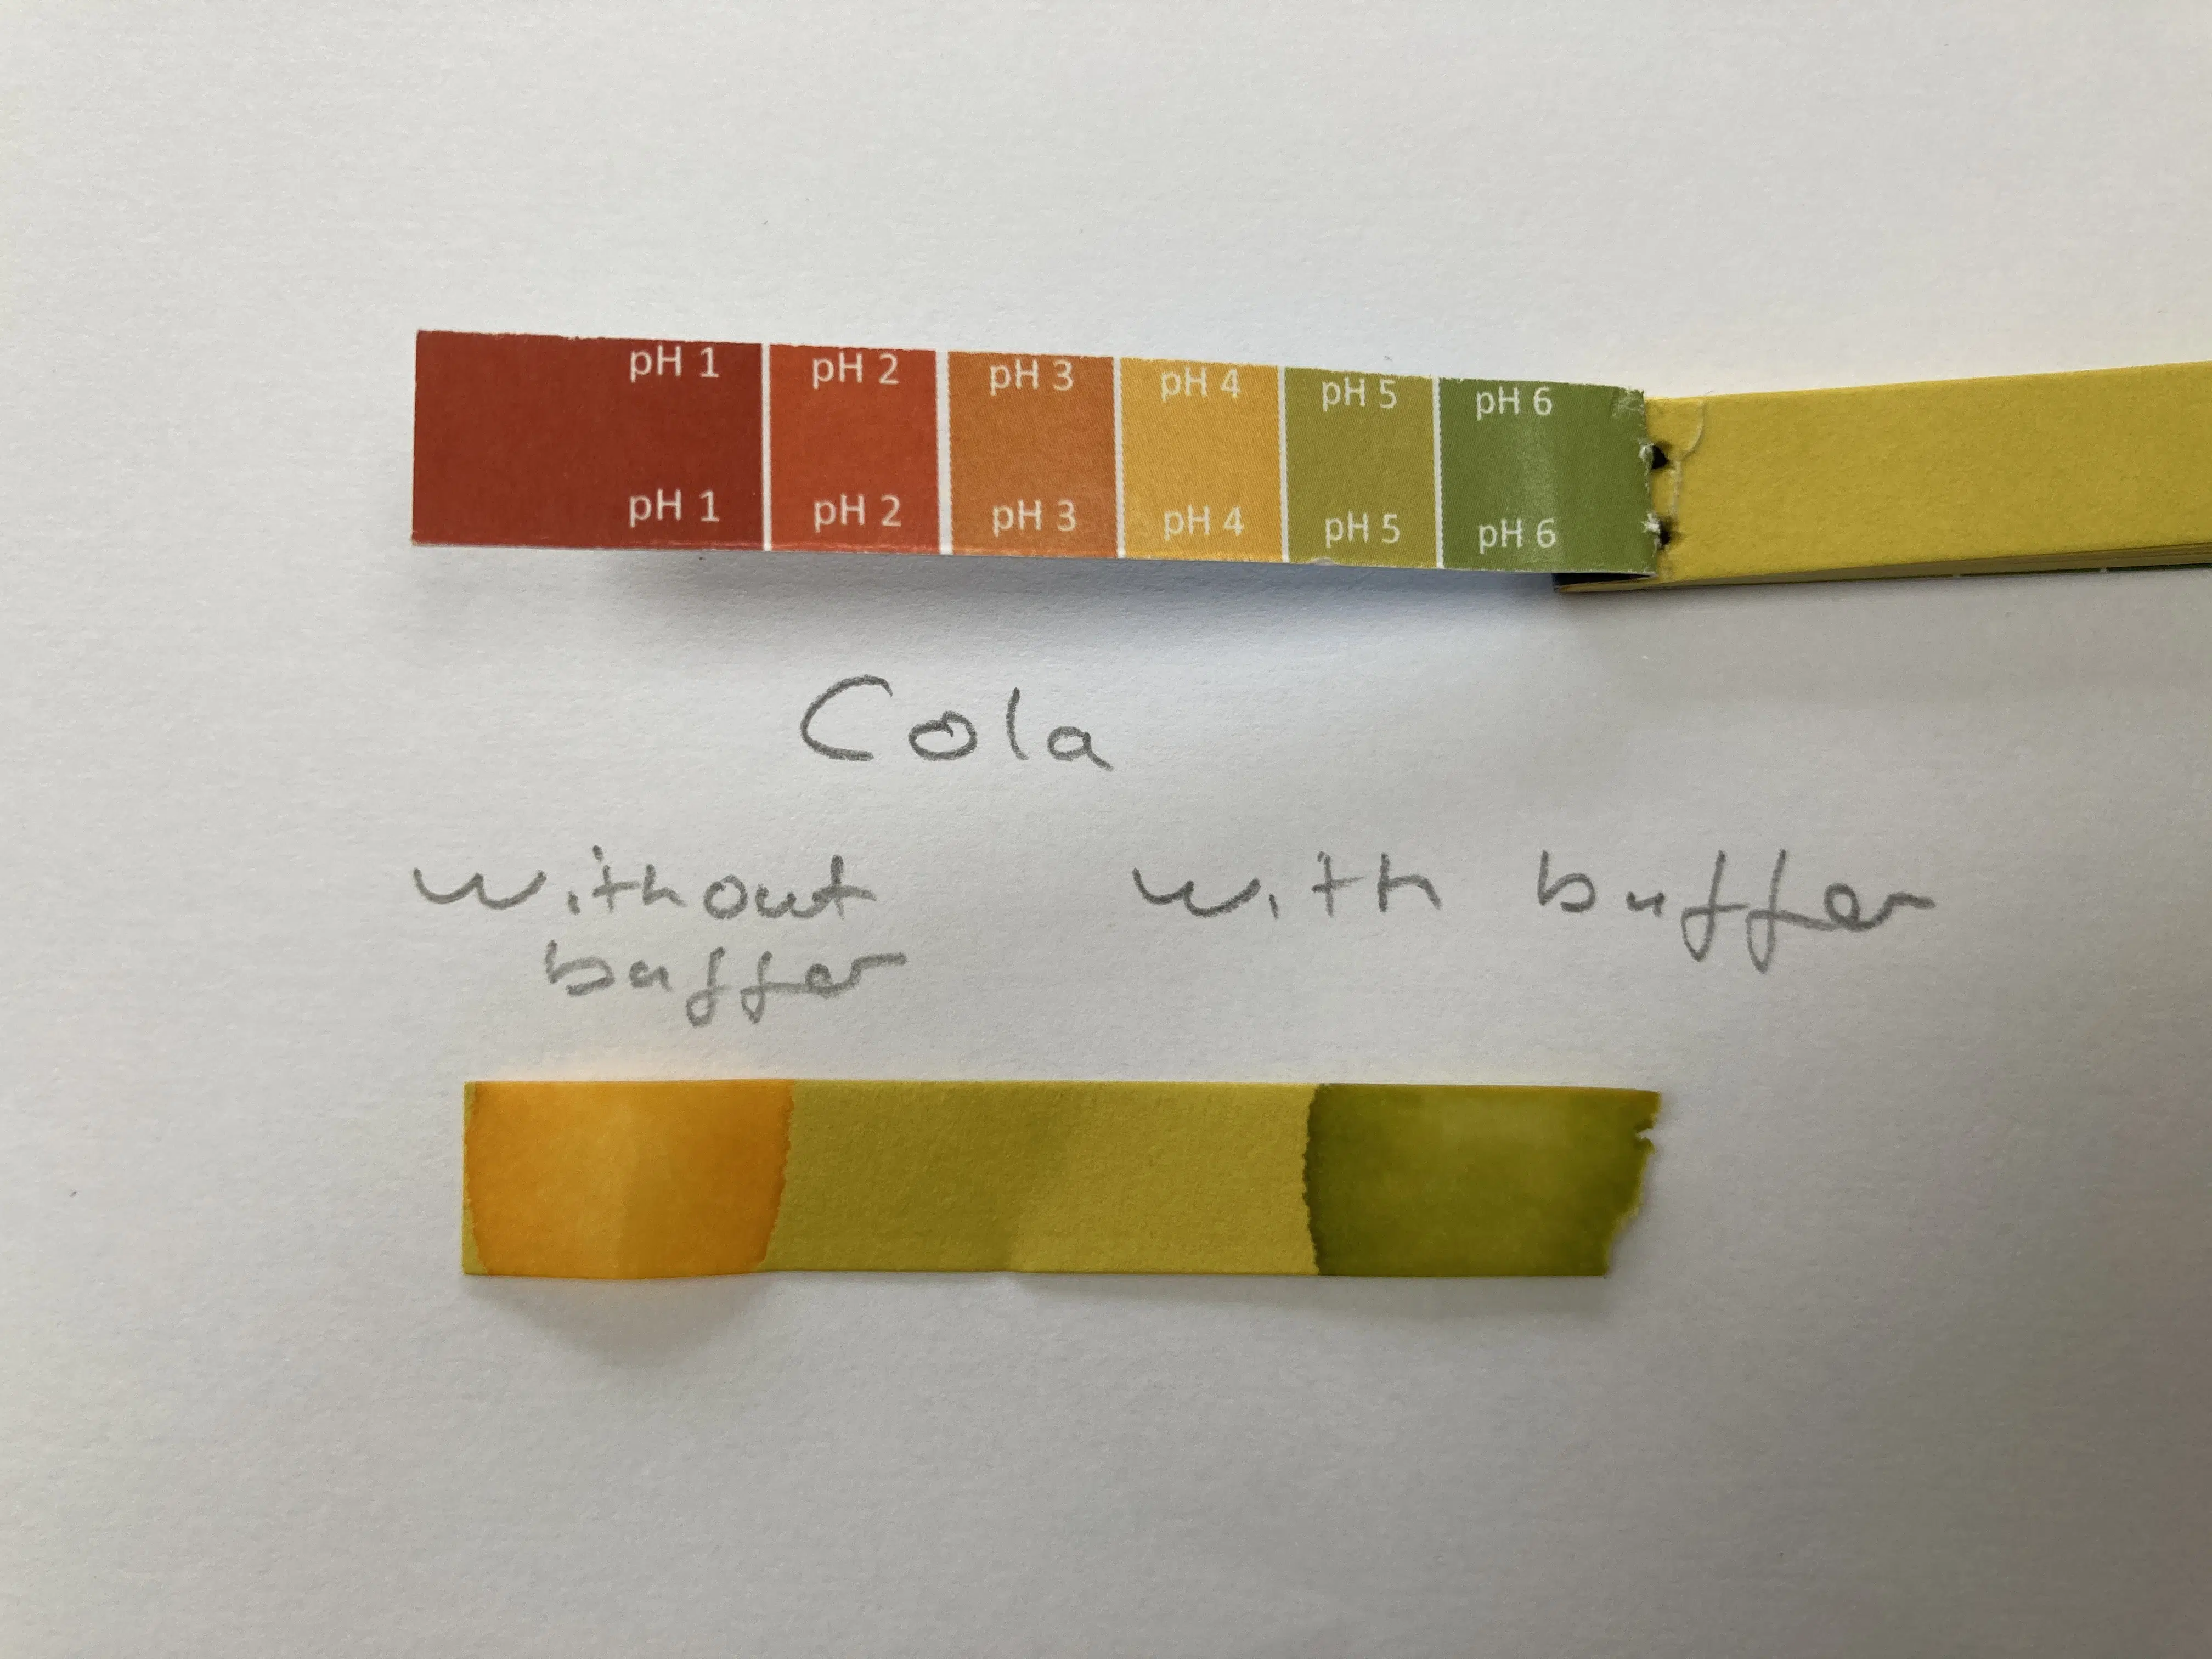 pH 1 pH 2 pH 3 pH 4 pH 5 pH 6
pH 1 pH 2 pH 3 pH 4 pH 5 pH 6
Cola
without with buffer
buffer